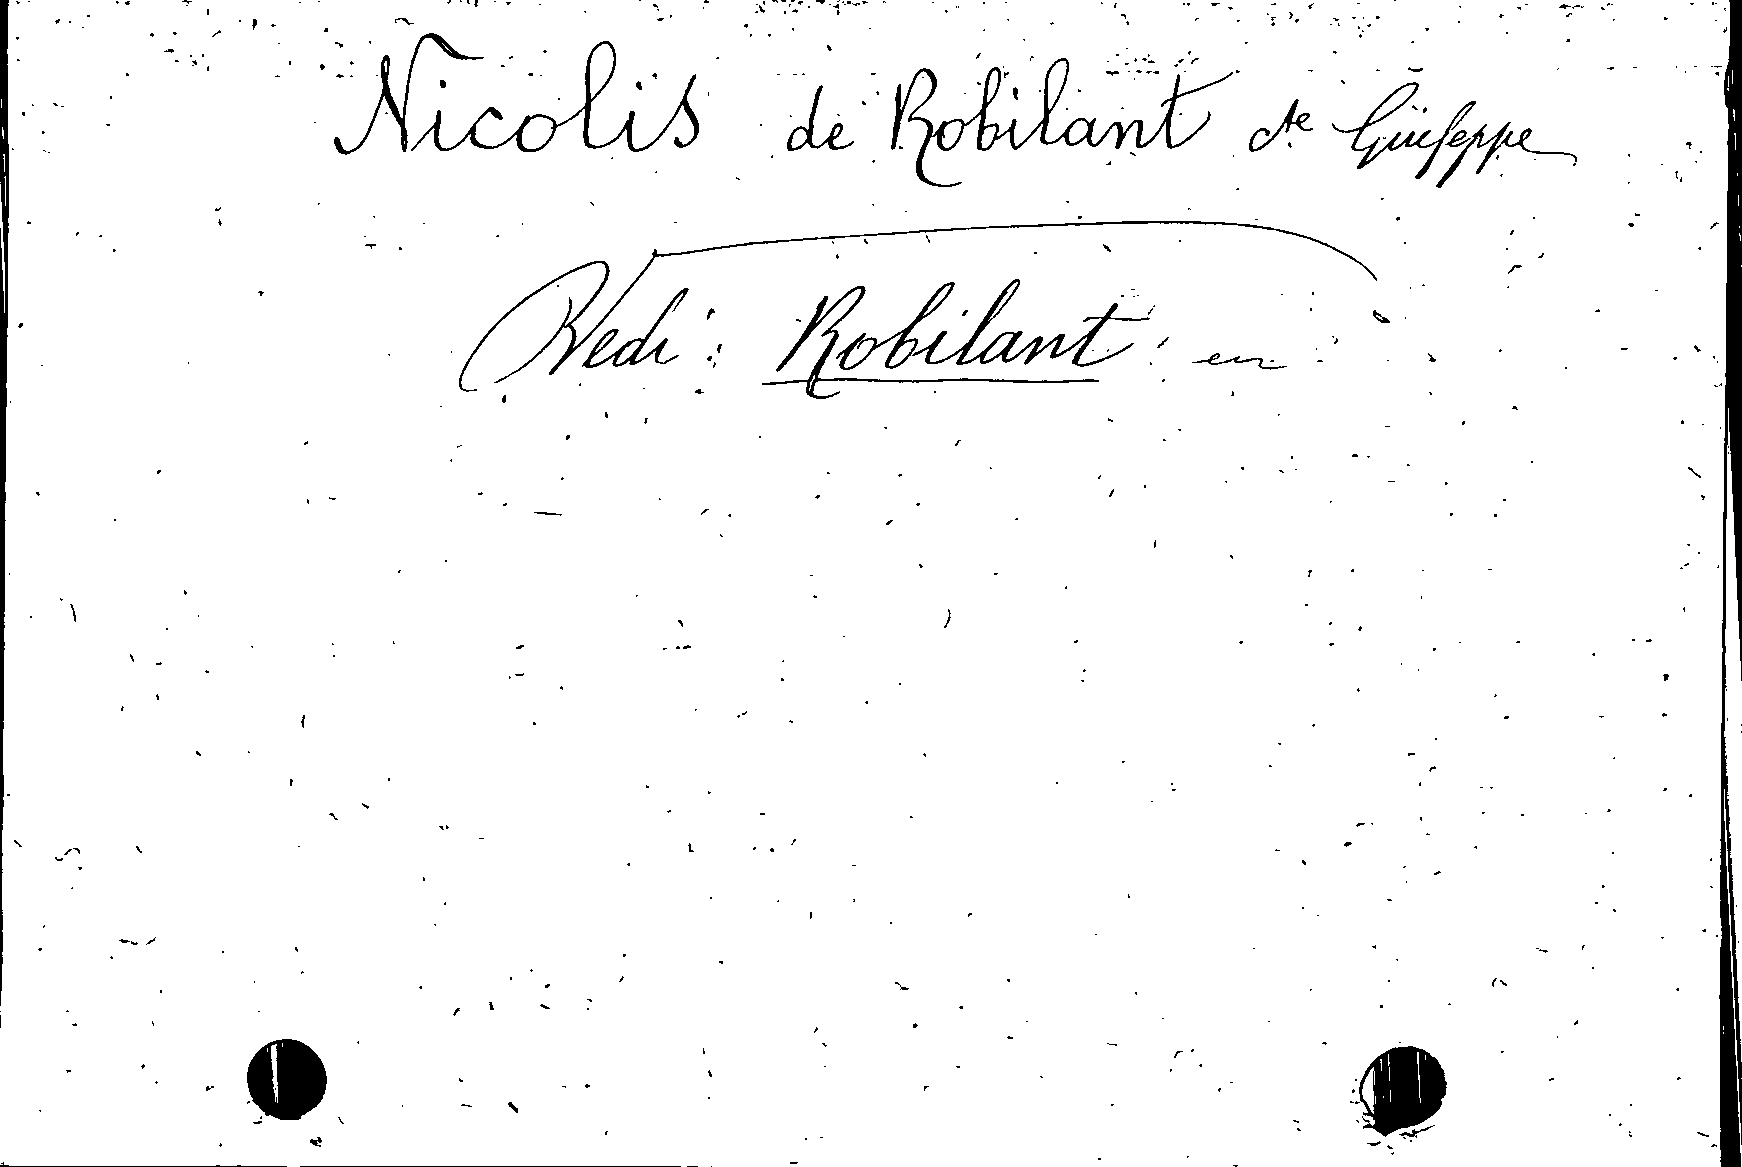 Nicolis de Robilant cte Giuseppe
Vedi: Robilant